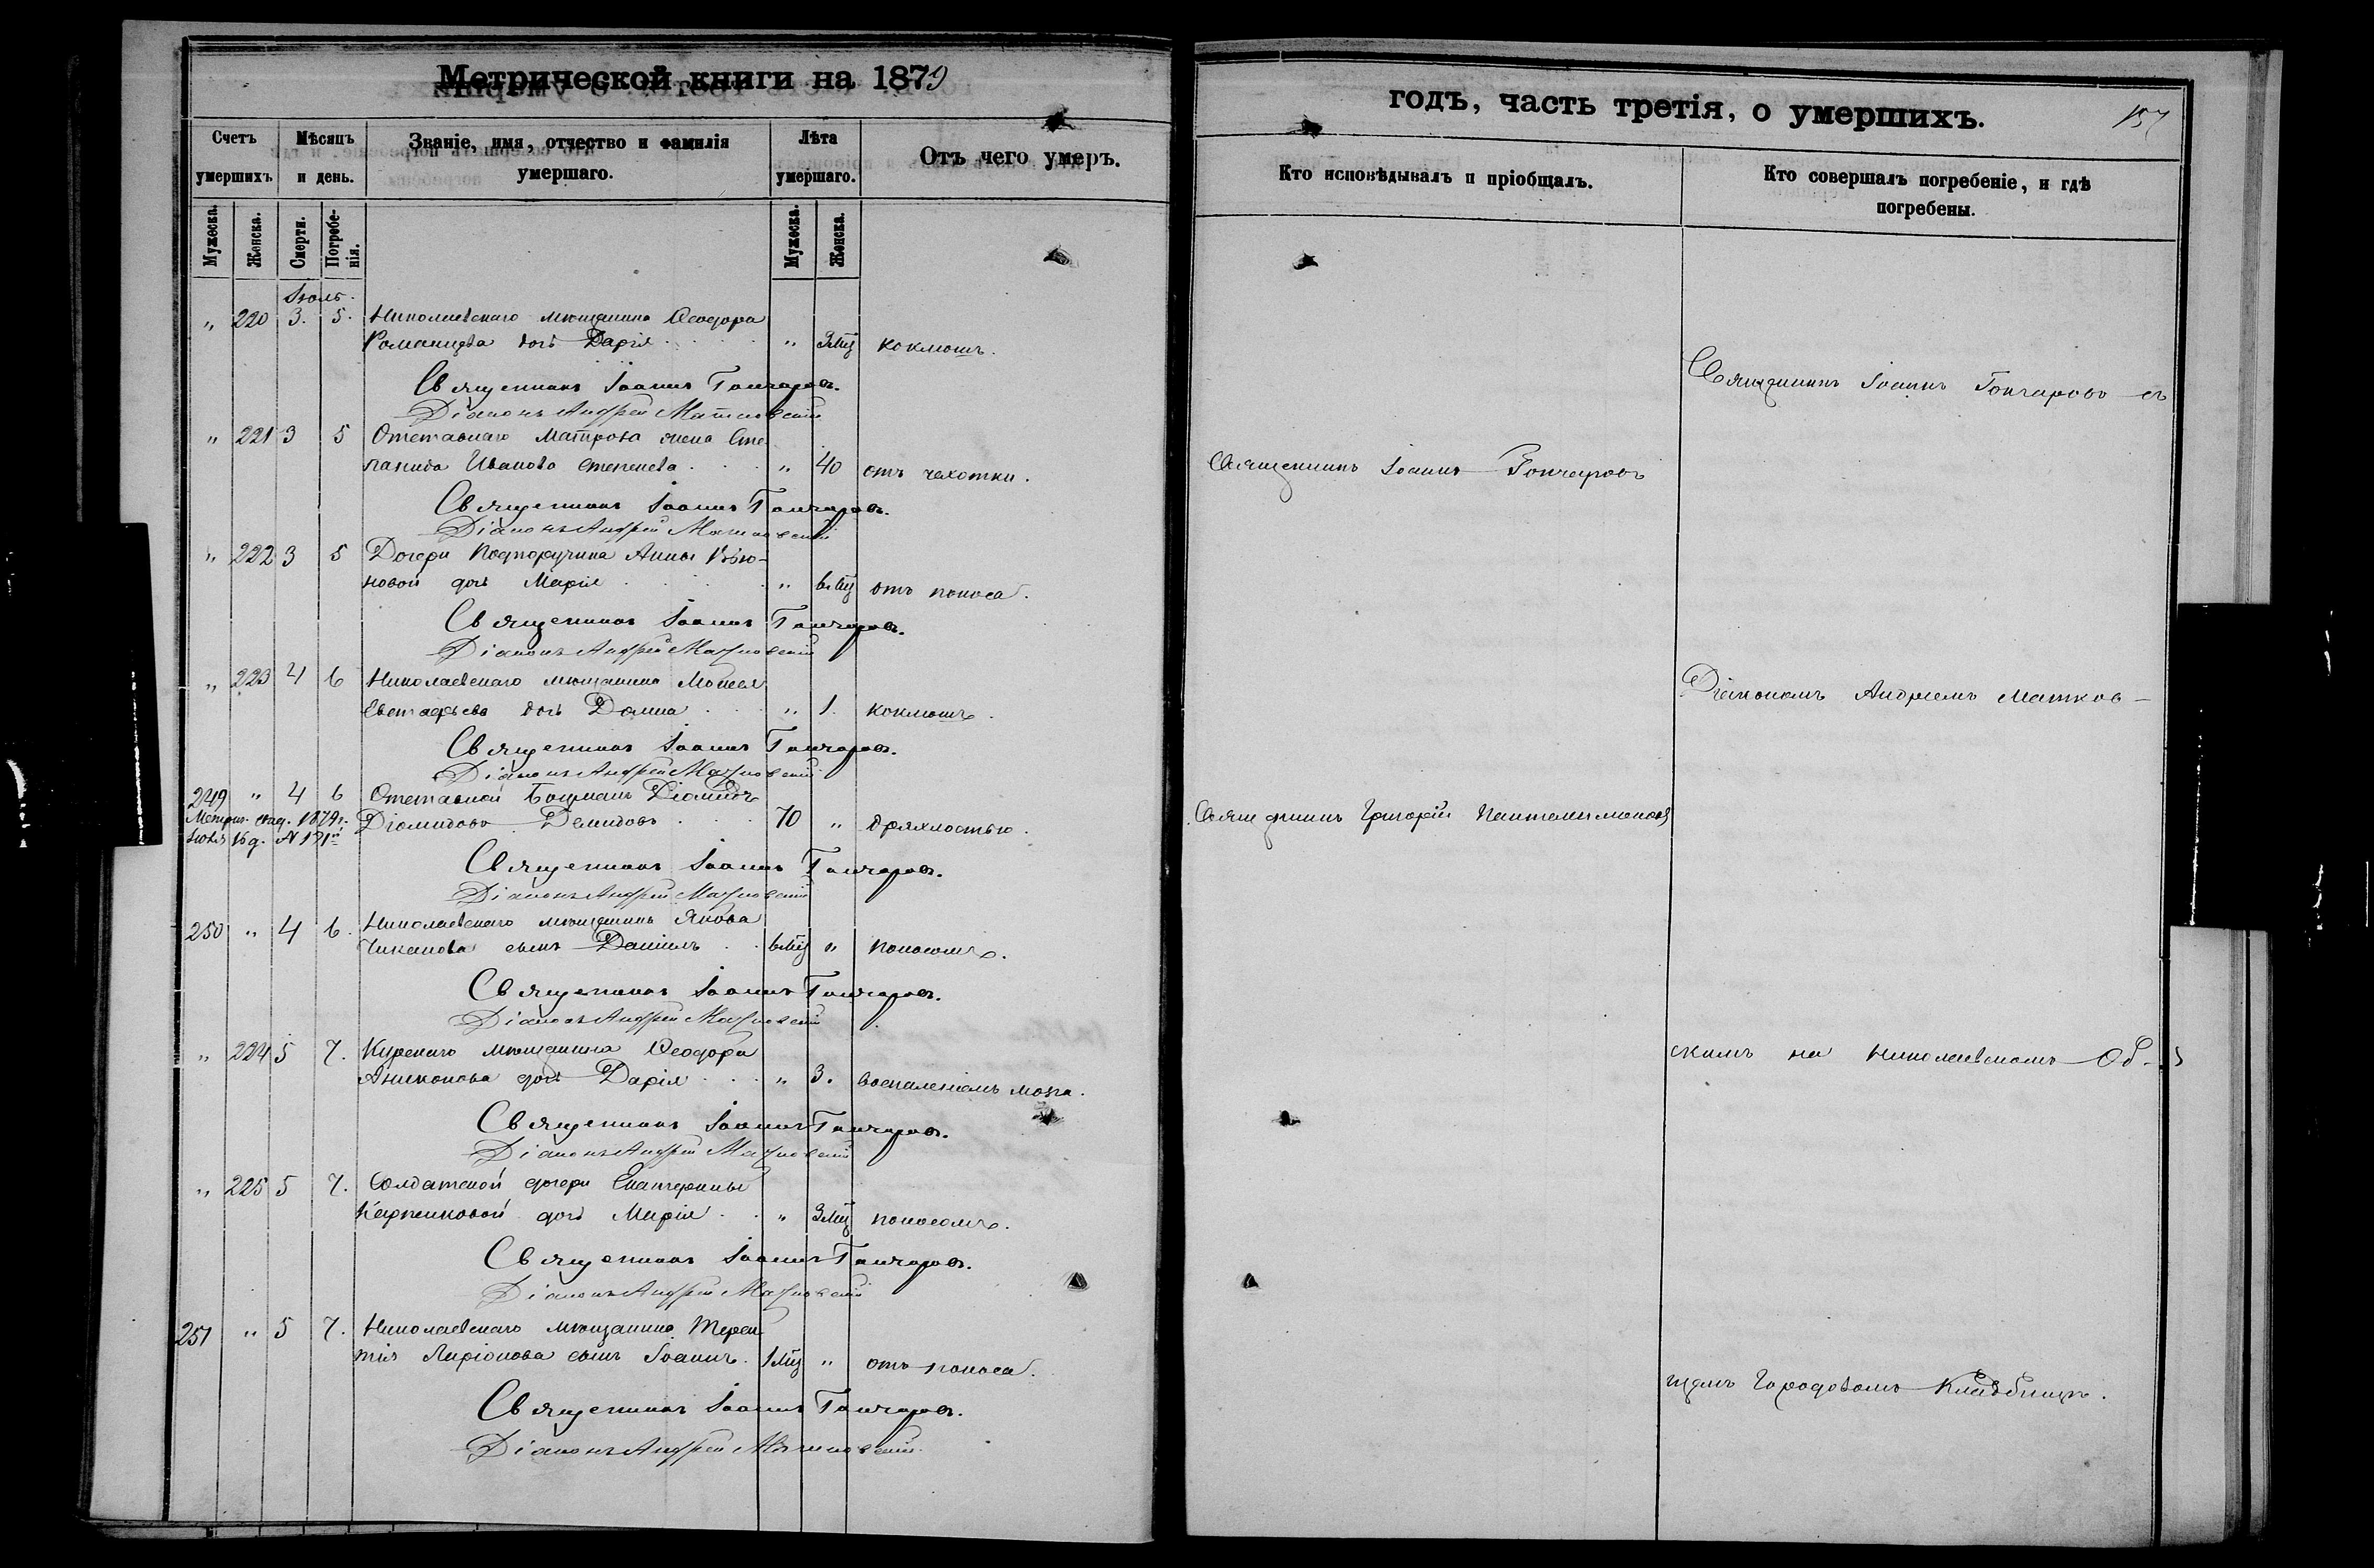 Метрической книги на 1879
Счетъ умершихъ.
Мѣсяцъ и день.
Званіе, имя, отчество и фамилія умершаго.
Лѣта умершаго.
Отъ чего умеръ.
Мужеска. Женска. Смерти. Погребенія. Мужеска. Женска.
Іюль.
" 220 3. 5. Николаевскаго мѣщанина Ѳеодора
Романцева дочь Дарія " 3 мц коклюшъ.
Священникъ Іоаннъ Гончаровъ.
Діаконъ Андрей Матковскій
" 221 3 5 Отставнаго Матроса жена Сте-
панида Иванова " 40 отъ чахотки.
Священникъ Іоаннъ Гончаровъ.
Діаконъ Андрей Матковскій
" 222 3 5 Дочери Подпоручика Анны
новой дочь Марія " 6 мц отъ поноса.
Священникъ Іоаннъ Гончаровъ.
Діаконъ Андрей Матковскій
" 223 4 6 Николаевскаго мѣщанина Моисея
Евстафьева дочь Домна " 1. коклюшъ.
Священникъ Іоаннъ Гончаровъ.
Діаконъ Андрей Матковскій
249 " 4 6 Отставной Боцманъ Діомидъ
Метрич. 1879 г. Діомидовъ Демидовъ 70 " дряхлостью.
Священникъ Іоаннъ Гончаровъ.
Діаконъ Андрей Матковскій
250 " 4 6. Николаевскаго мѣщанина Якова
Чиканова сынъ Даніилъ 6 мц " поносомъ.
Священникъ Іоаннъ Гончаровъ.
Діаконъ Андрей Матковскій
" 224 5 7. Курскаго мѣщанина Ѳеодора
Анисконова дочь Дарія " 3. воспаленіемъ мозга.
Священникъ Іоаннъ Гончаровъ.
Діаконъ Андрей Матковскій
" 225 5 7. Солдатской дочери Екатерины
Карпенковой дочь Марія " 3 мц поносомъ.
Священникъ Іоаннъ Гончаровъ.
Діаконъ Андрей Матковскій
251 " 5 7. Николаевскаго мѣщанина Терен-
тія Ларіонова сынъ Іоаннъ. 1 мц " отъ поноса.
Священникъ Іоаннъ Гончаровъ.
Діаконъ Андрей Матковскій
годъ, часть третія, о умершихъ.
157
Кто исповѣдывалъ и пріобщалъ.
Кто совершалъ погребеніе, и гдѣ погребены.
Священникъ Іоаннъ Гончаровъ съ
Священникъ Іоаннъ Гончаровъ
Діакономъ Андреемъ Матков-
Священникъ Григорій Пантелеимоновъ
скимъ на Николаевскомъ Об-
щемъ Городовомъ Кладбищѣ.